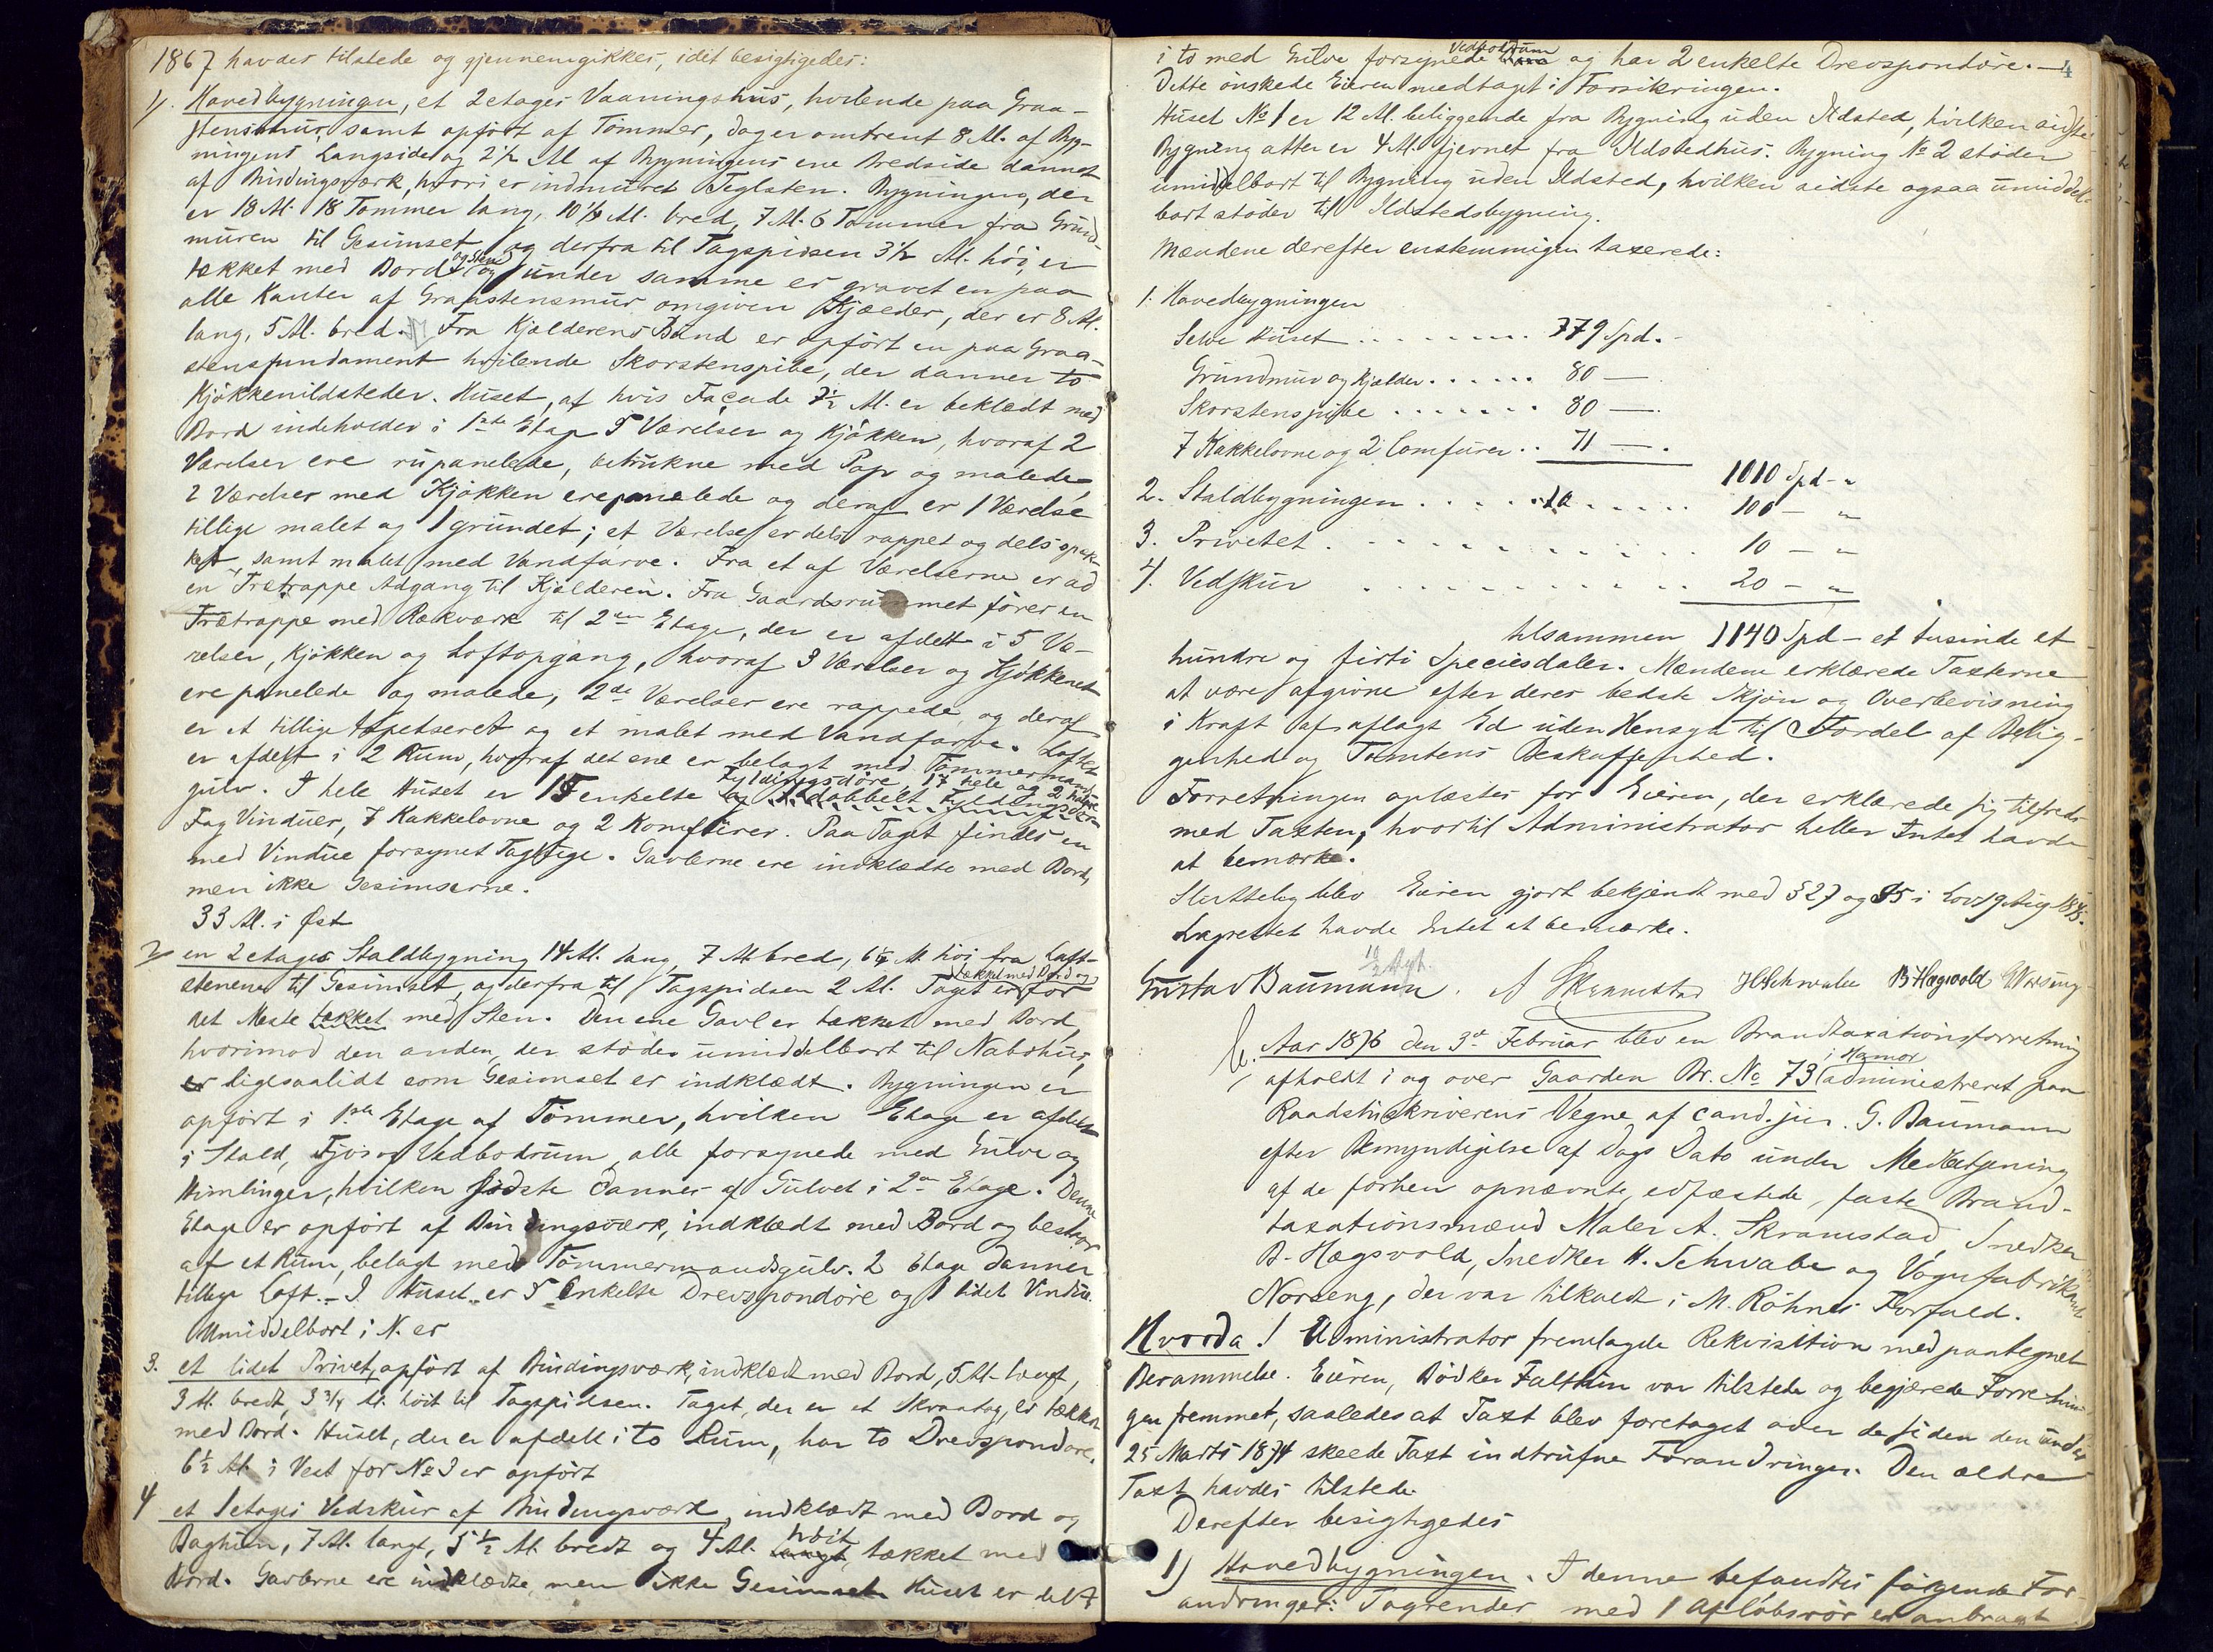 1867 havdes tilstede og gjennemgikkes, idet besigtigedes:
1). Hovedbygningen, et 2etages Vaaningshus, hvilende paa Graa-
stensmur, samt opført af Tømmer, dog er omtrent 8 Al. af Byg-
ningens Langside og 2½ Al af Bygningens ene Bredside dannet
af Bindingsværk, hvori er indmuret Teglsten. Bygningen, der
er 18 Al. 18 Tommer lang, 10½ Al. bred, 7 Al. 6 Tommer fra Grund-
muren til Gesimset og derfra til Tagspidsen 3½ Al. høi, er
tækket med Bord og Sten og under samme er gravet en paa
alle Kanter af Graastensmur omgiven Kjælder, der er 8 Al.
lang, 5 Al. bred. Fra Kjælderens Bund er opført en paa Graa-
stensfundament hvilende Skorstenspibe, der danner to
Kjøkkenildsteder. Huset, af hvis Façade 7½ Al. er beklædt med
Bord indeholder i 1ste Etage 5 Værelser og Kjøkken, hvoraf 2
Værelser ere rupanelede, betrukne med Pap og malede,
2 Værelser med Kjøkken ere panelede og deraf er 1 Værelse
tillige malet og 1 grundet; et Værelse er dels rappet og dels spæk-
ket, samt malet med Vandfarve. Fra et af Værelserne er ad
en Trætrappe Adgang til Kjælderen. Fra Gaardsrummet fører en
Trætrappe med Rækværk til 2den Etage, der er afdelt i 5 Væ-
relser, Kjøkken og Loftopgang, hvoraf 3 Værelser og Kjøkkenet
ere panelede og malede, 2de Værelser ere rappede, og deraf
er et tillige tapetseret og et malet med Vandfarve. Loftet
er afdelt i 2 Rum, hvoraf det ene er belagt med Tømmermands
gulv. I hele Huset er 15 enkelte Fyldingsdøre, 17 hele og 2 halve
og 1 dobbelt Fyldingsdør
Fag Vinduer, 7 Kakkelovne og 2 Komfurer. Paa Taget findes en
med Vindue forsynet Tagstige. Gavlerne ere indklædte med Bord,
men ikke Gesimserne.
33 Al. i Øst
2) en 2etages Staldbygning 14 Al. lang, 7 Al bred, 6¼ Al høi fra Luft-
stenene til Gesimset, og derfra til Tagspidsen 2 Al. Taget er tækket med Bord og for
det Meste tækket med Sten. Den ene Gavl er tækket med Bord,
hvorimod den anden, der støder umiddelbart til Nabohus,
er ligesaalidt som Gesimset er indklædt. Bygningen er
opført i 1ste Etage af Tømmer, hvilken Etage er afdelt
i Stald, Fjøs og Vedbodrum, alle forsynede med Gulve og
Himlinger, hvilken sidste dannes af Gulvet i 2den Etage. Denne
Etage er opført af Bindingsværk, indklædt med Bord og bestaar
af et Rum, belagt med Tømmermandsgulv. 2 Etage danner
tillige Loft. – I Huset er 5 enkelte Drevspondøre og 1 lidet Vindue.
Umiddelbart i N. er
3. et lidet Privet, opført af Bindingsværk, indklædt med Bord, 5 Al. langt,
3 Al. bredt, 3¾ Al. høit til Tagspidsen. Taget, der er et Skraatag, er tækket
med Bord. Huset, der er afdelt i to Rum, har to Drevspondøre.
6½ Al. i Vest for No 3 er opført
4 et 1etages Vedskur af Bindingsværk, indklædt med Bord og
Baghun, 7 Al. langt, 5½ Al. bredt og 4 Al. langt høit, tækket med
Bord. Gavlerne ere indklædte, men ikke Gesimset. Huset er delt
4
i to med Gulve forsynede Vedbodrum og har 2 enkelte Drevspondøre. —
Dette ønskede Eieren medtaget i Forsikringen.
Huset No 1 er 12 Al. beliggende fra Bygning uden Ildsted, hvilken sidste
Bygning atter er 4 Al. fjernet fra Ildstedhus. Bygning No 2 støder
umiddelbart til Bygning uden Ildsted, hvilken sidste ogsaa umiddel-
bart støder til Ildstedsbygning.
Mændene derefter enstemmigen taxerede:
1. Hovedbygningen
Selve Huset . . . . . . . . 779 Spd. -
Grundmur og Kjælder . . . . . . 80 —
Skorstenspibe . . . . . . . 80 —
7 Kakkelovne og 2 Comfurer . . 71 — .
1010 Spd - "
2. Staldbygningen . . . . . . . . . 100 - "
3. Privetet . . . . . . . . . . . 10 - "
4. Vedskur . . . . . . . . . . 20 - "
tilsammen 1140 Spd - et tusinde et
hundre og firti Speciesdaler. Mændene erklærede Taxterne
at være afgivne efter deres bedste Skjøn og Overbevisning
i Kraft af aflagt Ed uden Hensyn til Fordel af Belig-
genhed og Tomtens Beskaffenhed.
Forretningen oplæstes for Eieren, der erklærede sig tilfreds
med Taxten, hvortil Administrator heller Intet havde
at bemærke.
Sluttelig blev Eieren gjort bekjendt med § 27 og 35 i Lov 19 Aug 1845.
Lagrettet havde Intet at bemærke.
Gustav Baumann. A Skramstad H Schwabe B Hægsvold Norseng
Aar 1876 den 3de Februar blev en Brandtaxationsforretning
afholdt i og over Gaarden Br. No 73 i Hamar administreret paa
Raadstuskriverens Vegne af cand. jur. G. Baumann
efter Bemyndigelse af Dags Dato under Medbetjening
af de forhen opnævnte, edfæstede, faste Brand-
taxationsmænd Maler A. Skramstad, Snedker
B. Hægsvold, Snedker H. Schwabe og Vognfabrikant
Norseng, der var tilkaldt i M. Röhnes Forfald.
Hvorda! Administrator fremlagde Rekvisition med paategnet
Berammelse. Eieren, Bødker Falthin var tilstede og begjærede Forretnin-
gen fremmet, saaledes at Taxt blev foretaget over de siden den under
25 Marts 1874 skeede Taxt indtrufne Forandringer. Den ældre
Taxt havdes tilstede.
Derefter besigtigedes
1) Hovedbygningen. I denne befandtes følgende For-
andringer: Tagrender med 1 Afløbsrør er anbragt